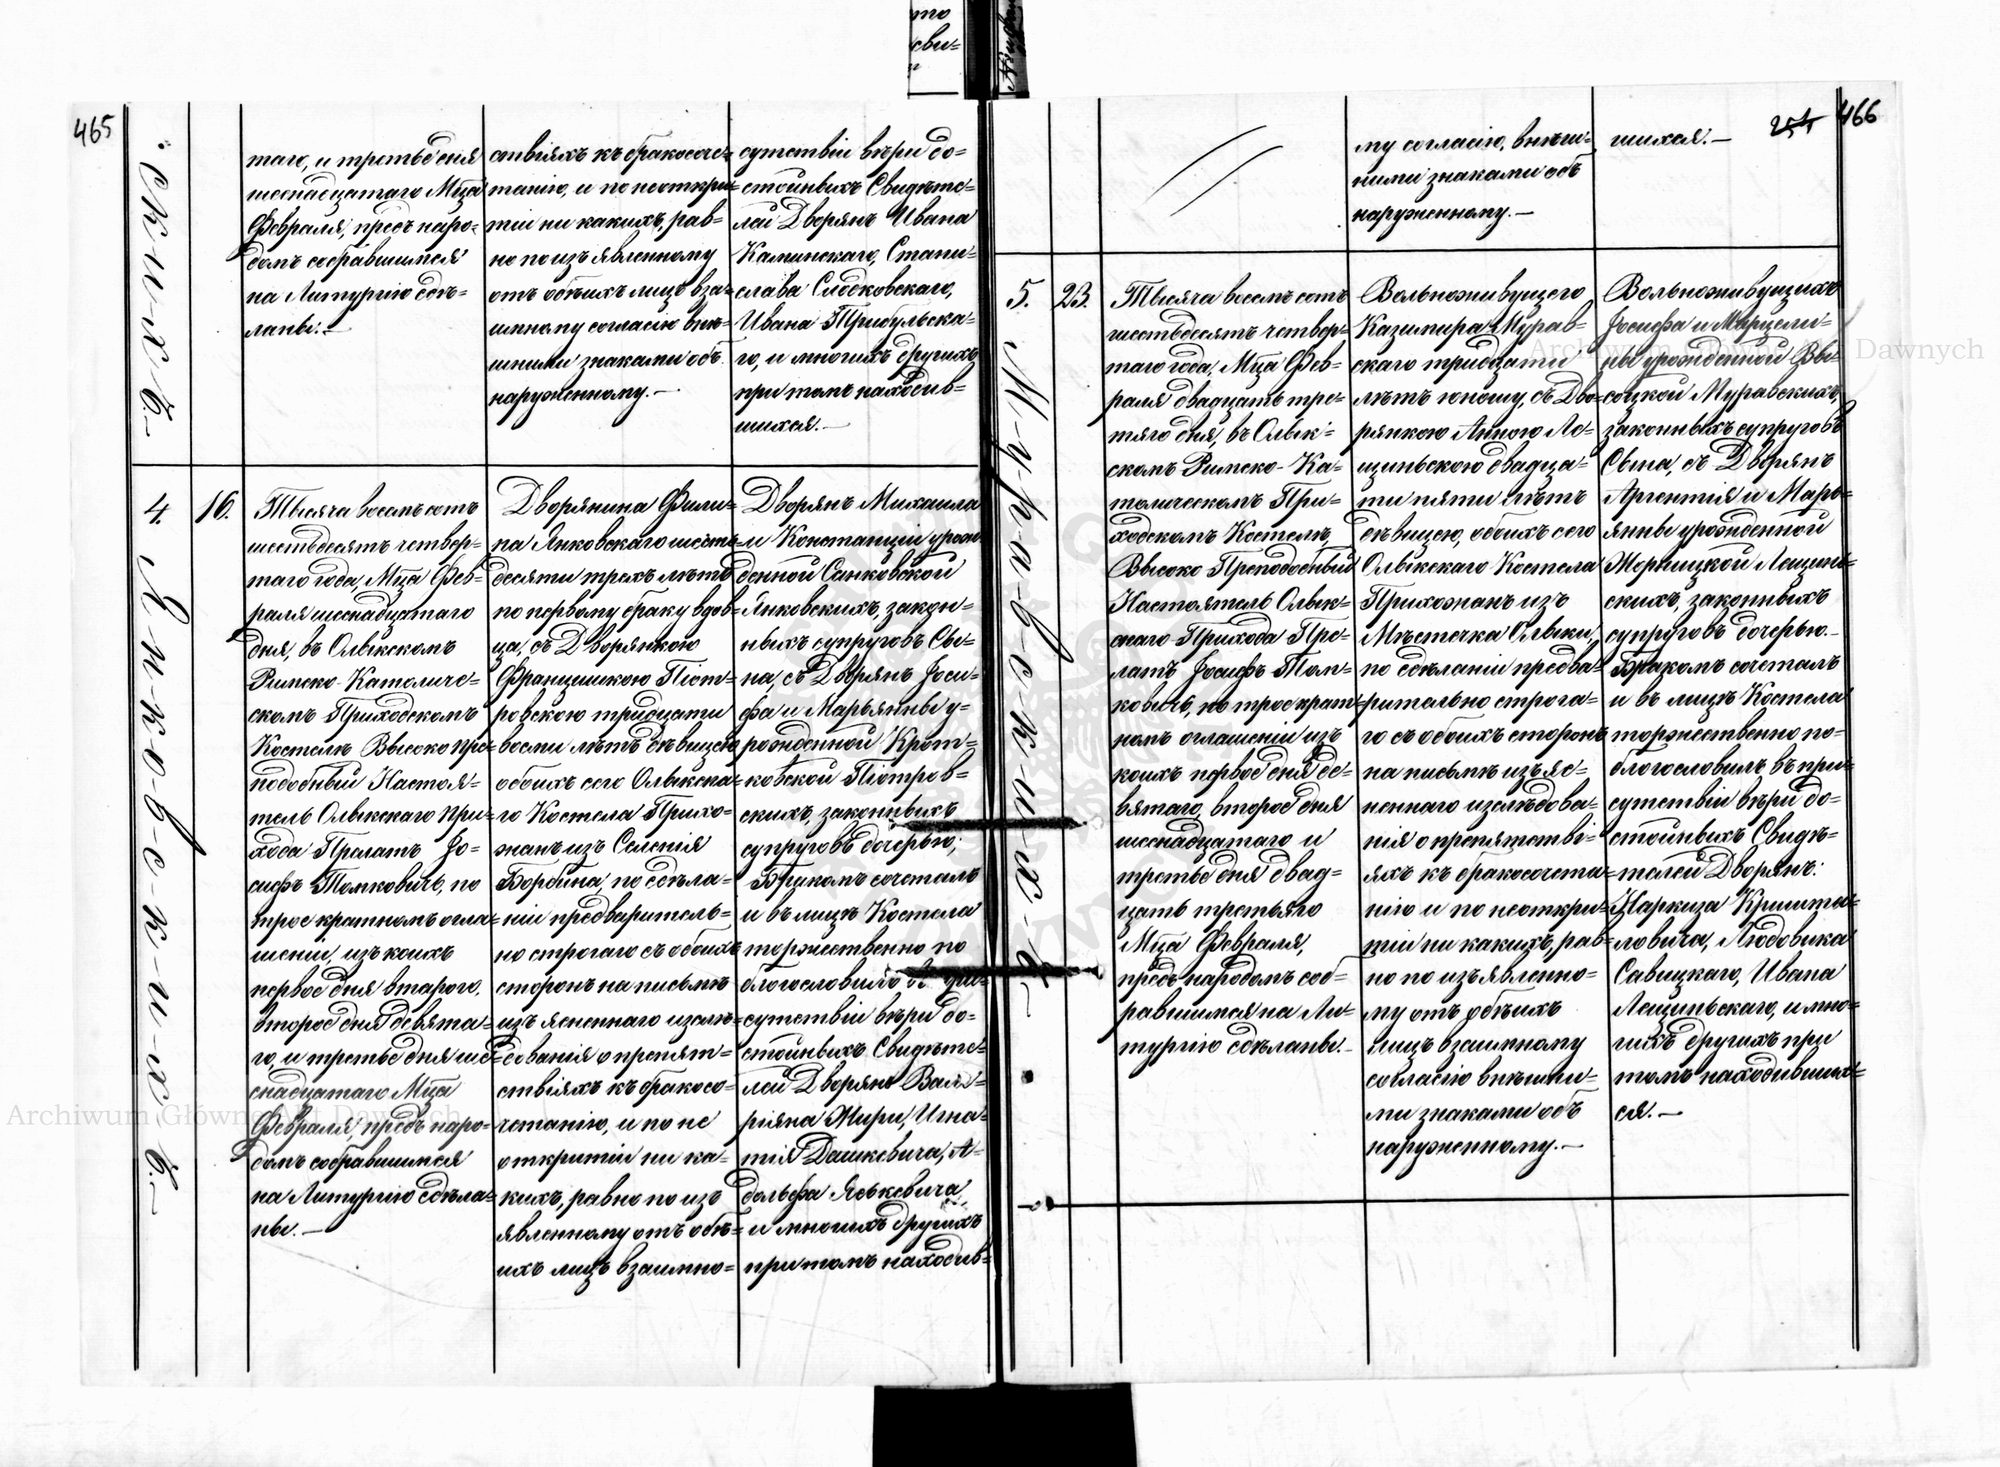 465
скихъ.-
таго, и третье дня
шеснадцатаго Мца
Февраля, предъ наро=
домъ собравшимся
на Литургію сдѣ=
ланы.-
ствіяхъ къ бракосоче=
танію, и по неоткры=
тіи ни какихъ, рав=
но по изъявленному
отъ обѣихъ лицъ вза=
имному согласію внѣ=
шними знаками об
наруженному.-
сутствіи вѣры до=
стойныхъ Свидѣте=
лей Дворянъ Ивана
Каминскаго, Стани=
слава
Ивана
го, и многихъ другихъ
при томъ находив=
шихся.-
4.
16.
Янковскихъ.-
Тысяча восемъ сотъ
шестьдесятъ четвер=
таго года, Мца Фев=
раля шеснадцатаго
дня, въ Олыкскомъ
Римско-Католиче=
скомъ Приходскомъ
Костелѣ Высокопре=
подобный Настоя=
тель Олыкскаго При=
хода Прелатъ Іо=
сифъ Томковичъ, по
троекратномъ огла=
шеніи, изъ коихъ
первое дня втораго,
второе дня девята=
го, и третье дня ше=
снадцатаго Мца
Февраля, предъ наро=
домъ собравшимся
на Литургію сдѣла=
ны.-
Дворянина Фили=
па Янковскаго шесть=
десяти трехъ лѣтъ
по первому браку вдов=
ца, съ Дворянкою
Францишкою Піот=
ровскою тридцати
восьми лѣтъ дѣвицею
обоихъ сего Олыкска=
го Костела Прихо=
жанъ изъ Селенія
Борбина, по сдѣла=
ніи предваритель=
но строгаго съ обоихъ
сторонъ на письмѣ
изъясненнаго изслѣ=
дованія о препят=
ствіяхъ къ бракосо=
четанію, и по не
открытіи ни ка=
кихъ, равно по изъ
явленному отъ обѣ=
ихъ лицъ взаимно=
Дворянъ Михаила
и Констанціи урож
денной Санковской
Янковскихъ, закон=
ныхъ супруговъ Сы=
на, съ Дворянъ Іоси=
фа и Марьянны у=
рожденной Крот=
ковской Піотров=
скихъ, законныхъ
супруговъ дочерью;
Бракомъ сочеталъ
и въ лицѣ Костела
торжественно по
благословилъ въ при=
сутствіи вѣры до=
стойныхъ Свидѣте=
лей Дворянъ Вале=
ріяна Жиры, Игна=
тія Дашкевича, А=
дольфа Яськевича,
и многихъ другихъ
при томъ находив=
466
му согласію, внѣш=
ними знаками объ
наруженному.-
шихся.-
5.
23.
Муравскихъ.-
Тысяча восемъ сотъ
шестьдесятъ четвер=
таго года, Мца Фев=
раля двадцать тре=
тяго дня, въ Олык=
скомъ Римско-Ка=
толическомъ При=
ходскомъ Костелѣ,
Высоко Преподобный
Настоятель Олык=
скаго Прихода Пре=
латъ Іосифъ Том=
ковичъ, по троекрат=
номъ оглашеніи изъ
коихъ первое дня де=
вятаго, второе дня
шеснадцатаго и
третье дня двад=
цать третьяго
Мца Февраля,
предъ народомъ соб=
равшимся на Ли=
тургію сдѣланы.-
Вольноживущего
Казимира Мурав=
скаго тридцати
лѣтъ юношу, съ Дво=
рянкою Анною Ле=
щиньскою двадца=
ти пяти лѣтъ
дѣвицею, обоихъ сего
Олыкскаго Костела
Прихожанъ изъ
Мѣстечка Олыки,
по сдѣланіи предва=
рительно строга=
го съ обоихъ сторонъ
на письмѣ изъяс=
неннаго изслѣдова=
нія о препятстві=
яхъ къ бракосочета=
нію и по неоткры=
тіи ни какихъ, рав=
но по изъявленно=
му отъ обѣихъ
лицъ взаимному
согласію внѣшни=
ми знаками объ
наруженному.-
Вольноживущихъ
Іосифа и Марцели=
ны урожденной Вы=
соцкой Муравскихъ,
законныхъ супруговъ
Сына, съ Дворянъ
Аргентія и Марь=
янны урожденной
Жорницкой Лещинь=
скихъ, законныхъ
супруговъ дочерью.-
Бракомъ сочеталъ
и въ лицѣ Костела
торжественно по=
благословилъ въ при=
сутствіи вѣры до=
стойныхъ Свидѣ=
телей Дворянъ:
Наркиза Криште=
ловича, Людовика
Савицкаго, Ивана
Лещиньскаго, и мно=
гихъ другихъ при
томъ находивших=
ся.-
Archiwum Główne Akt Dawnych
Archiwum Główne Akt Dawnych